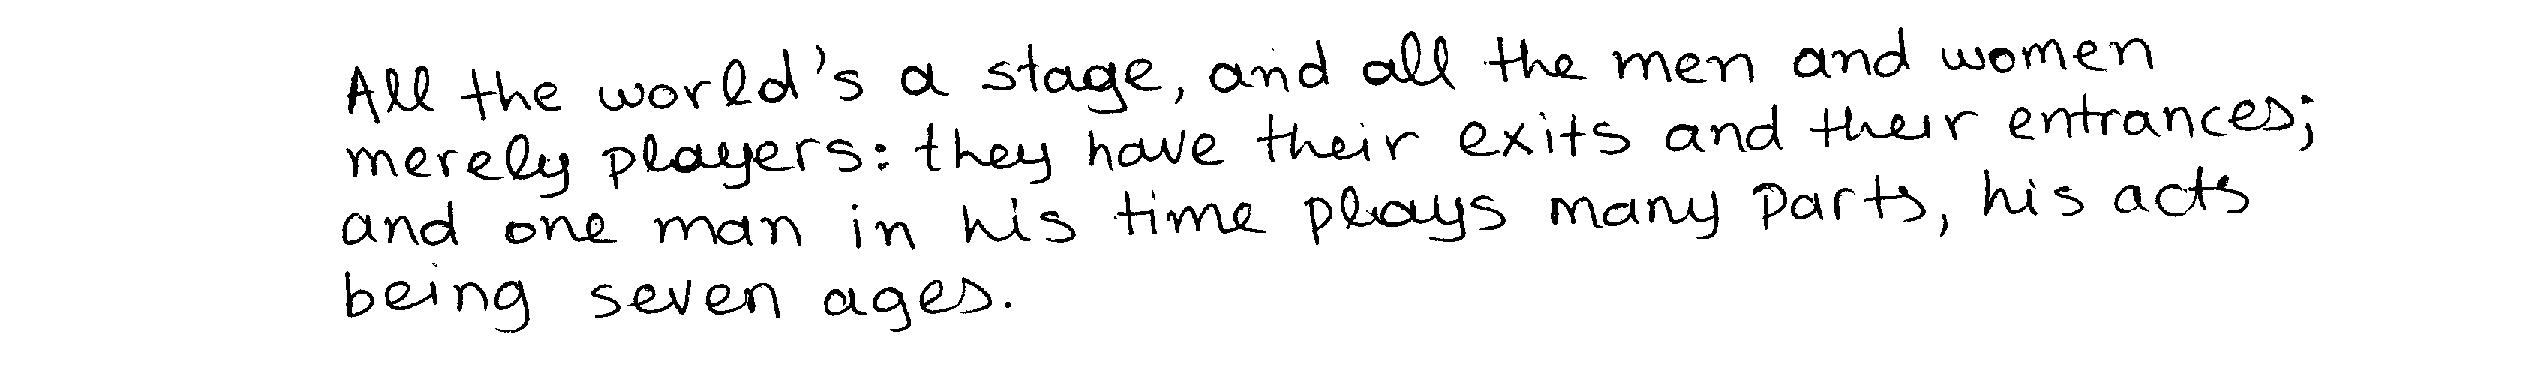 All the world's a stage, and all the men and women
merely players: they have their exits and their entrances;
and one man in his time plays many parts, his acts
being seven ages.